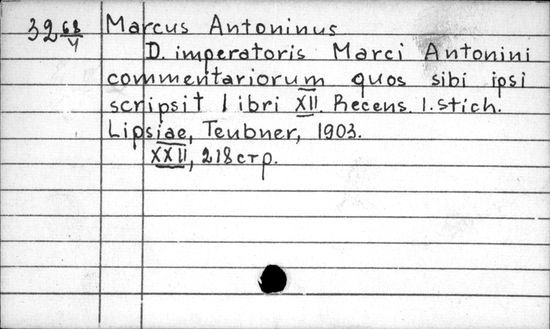 32 68/4 Marcus Antoninus
D. imperatoris Marci Antonini
commentariorum quos sibi ipsi
scripsit libri XII. Recens. I. Stich.
Lipsiae, Teubner, 1903.
XXII, 218 стр.